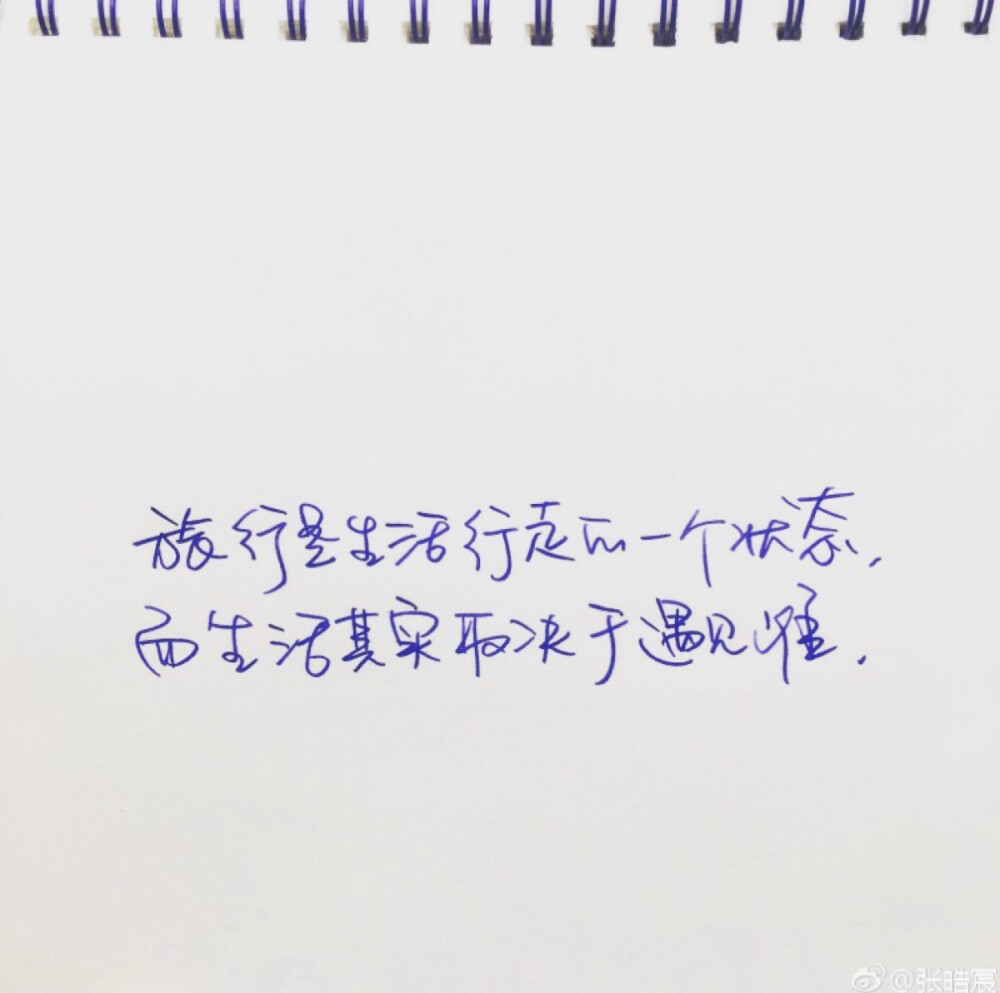 旅行是生活行走的一个状态,
而生活其实取决于遇见谁.
@张皓宸